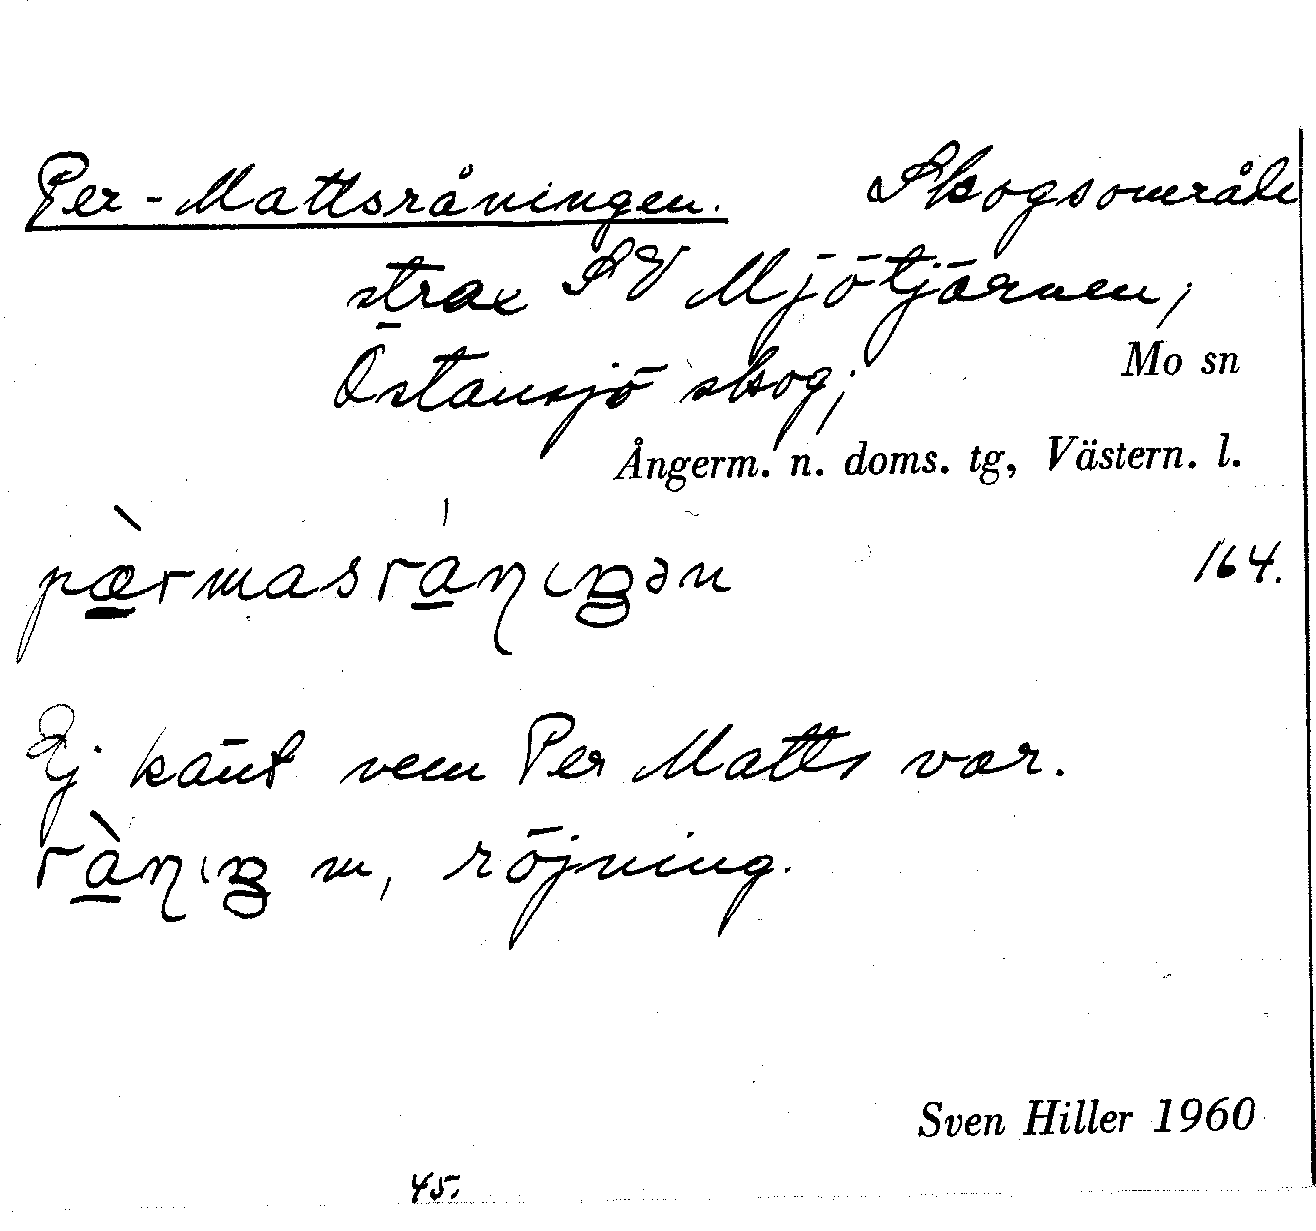 Per-Mattsråningen. Skogsområde
strax SV Mjötjärnen,
Östansjö skog;
Mo sn
Ångerm. n. doms. tg, Västern. l.
pæ̀rmasráɳıŋən 164.
Ej känt vem Per Matts var.
ràɳıŋ m, röjning.
Sven Hiller 1960
45.